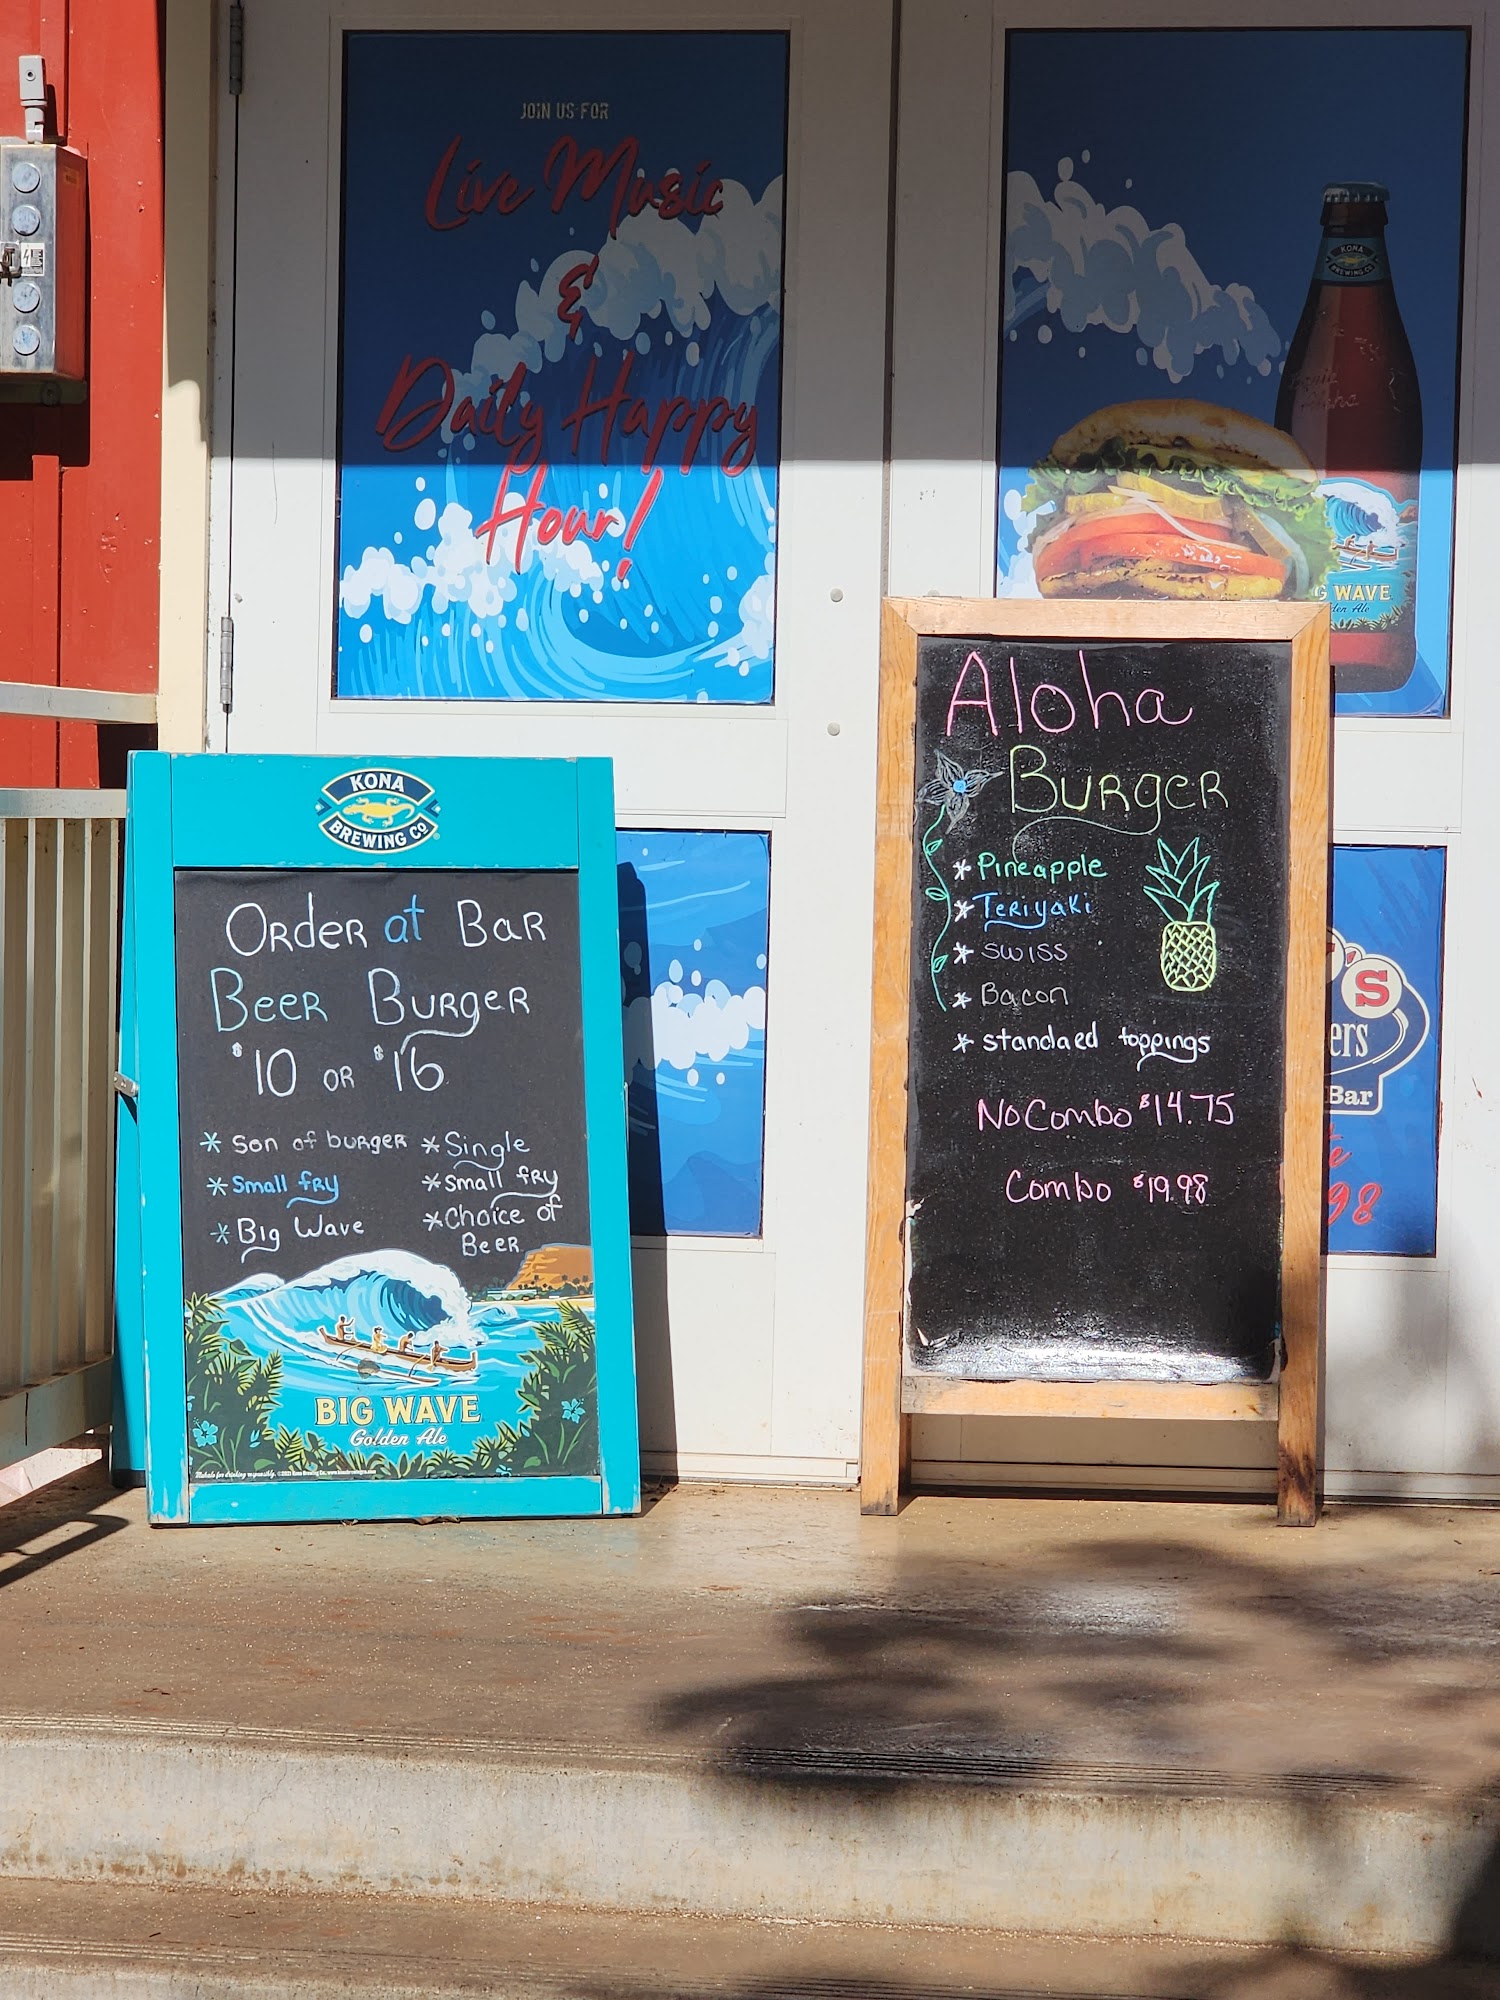 JOIN US FOR
Live Music
&
Daily Happy
Hour!
KONA
BREWING CO
G WAVE
den Ale
KONA
BREWING CO
Order at Bar
Beer Burger
$10 or $16
* Son of burger
* Small fry
* Big Wave
* Single
* Small fry
* Choice of
Beer
BIG WAVE
Golden Ale
Aloha
Burger
* Pineapple
* Teriyaki
* Swiss
* Bacon
* standaed toppings
No Combo $14.75
Combo $19.98
's
ers
Bar
98